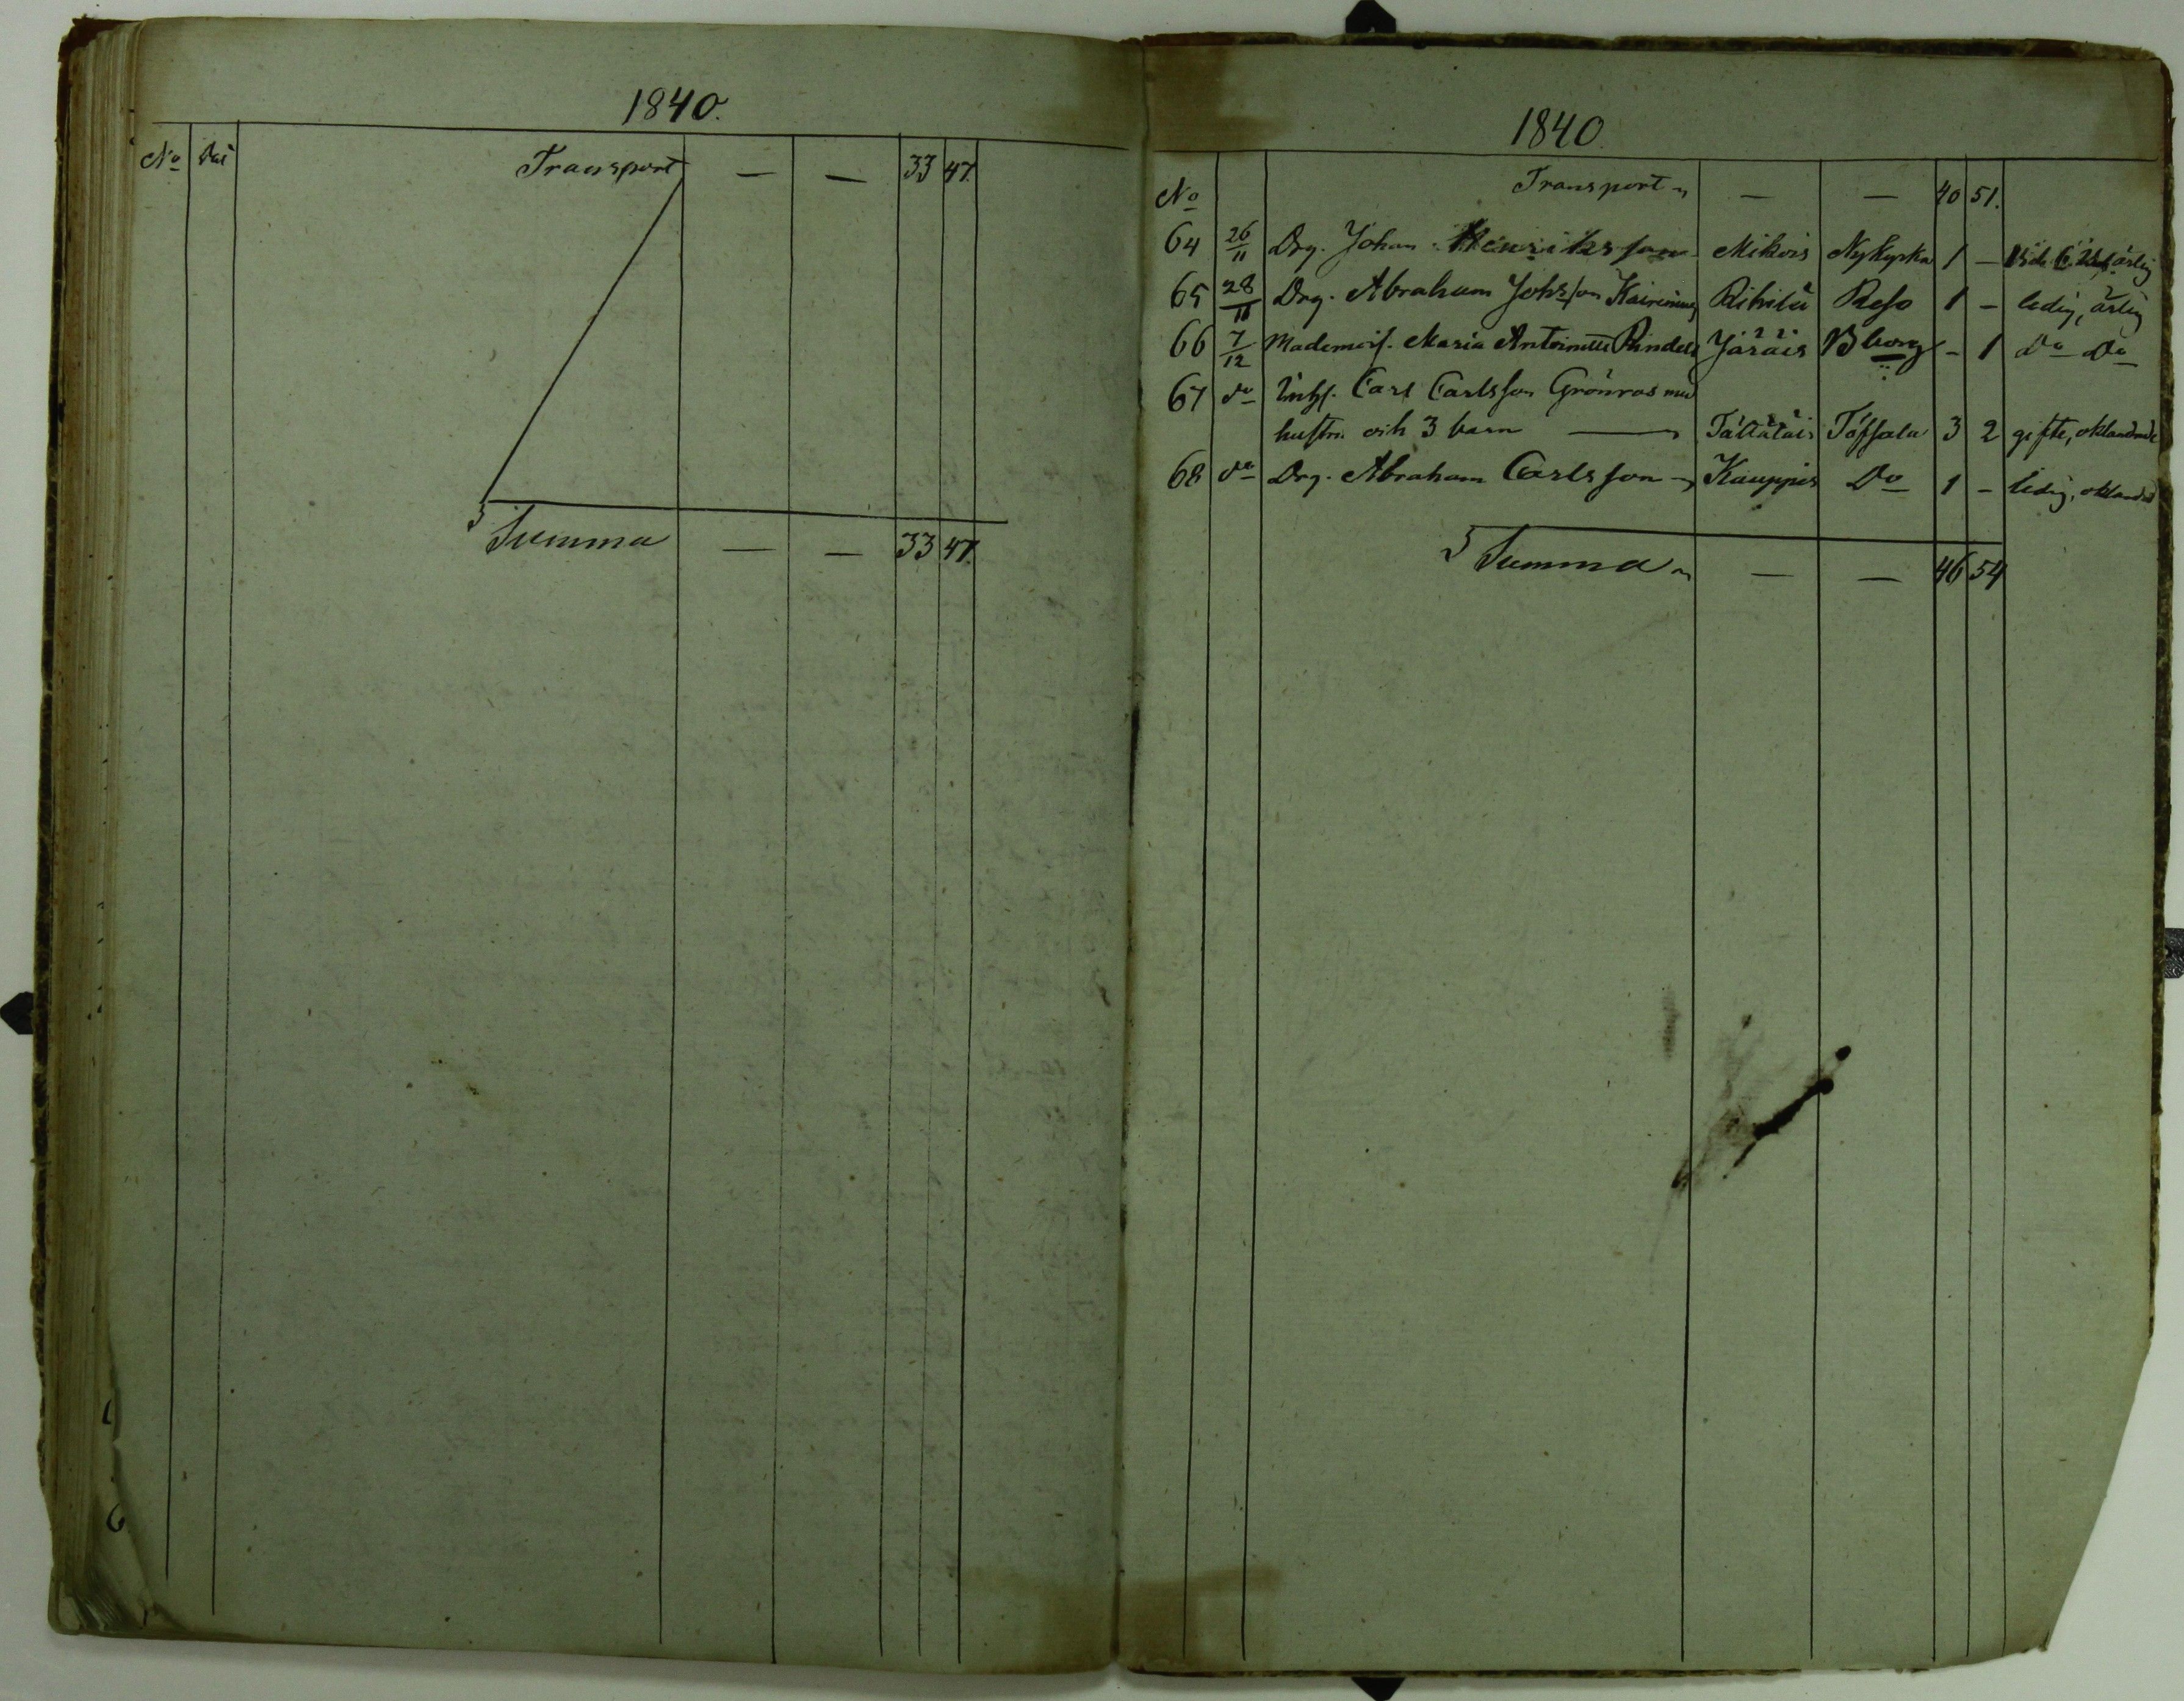 1840.
No Dat Transport — — 33 47.
Summa — — 33 47.
1840.
No Transport — — 40 51.
64 26/11 Drg. Johan Henriksson Mikois Nykyrka 1 — ärlig
65 28/11 Drg. Abraham Johsson Kairinen Rihilä Reso 1 — ledig, ärlig
66 7/12 Mademois. Maria Antoinette Rindell Järäis Bborg — 1 Do Do
67 do Inhs. Carl Carlsson Grönroos med
hustru och 3 barn — Tättäläis Töfsala 3 2 gifte, oklandrade
68 do Drg. Abraham Carlsson Kauppis Do 1 — ledig, oklandrad
Summa — — 46 54